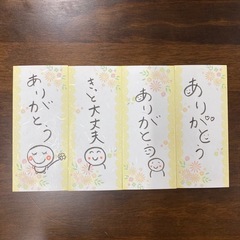 ありがとう
きっと大丈夫
ありがとう
ありがとう